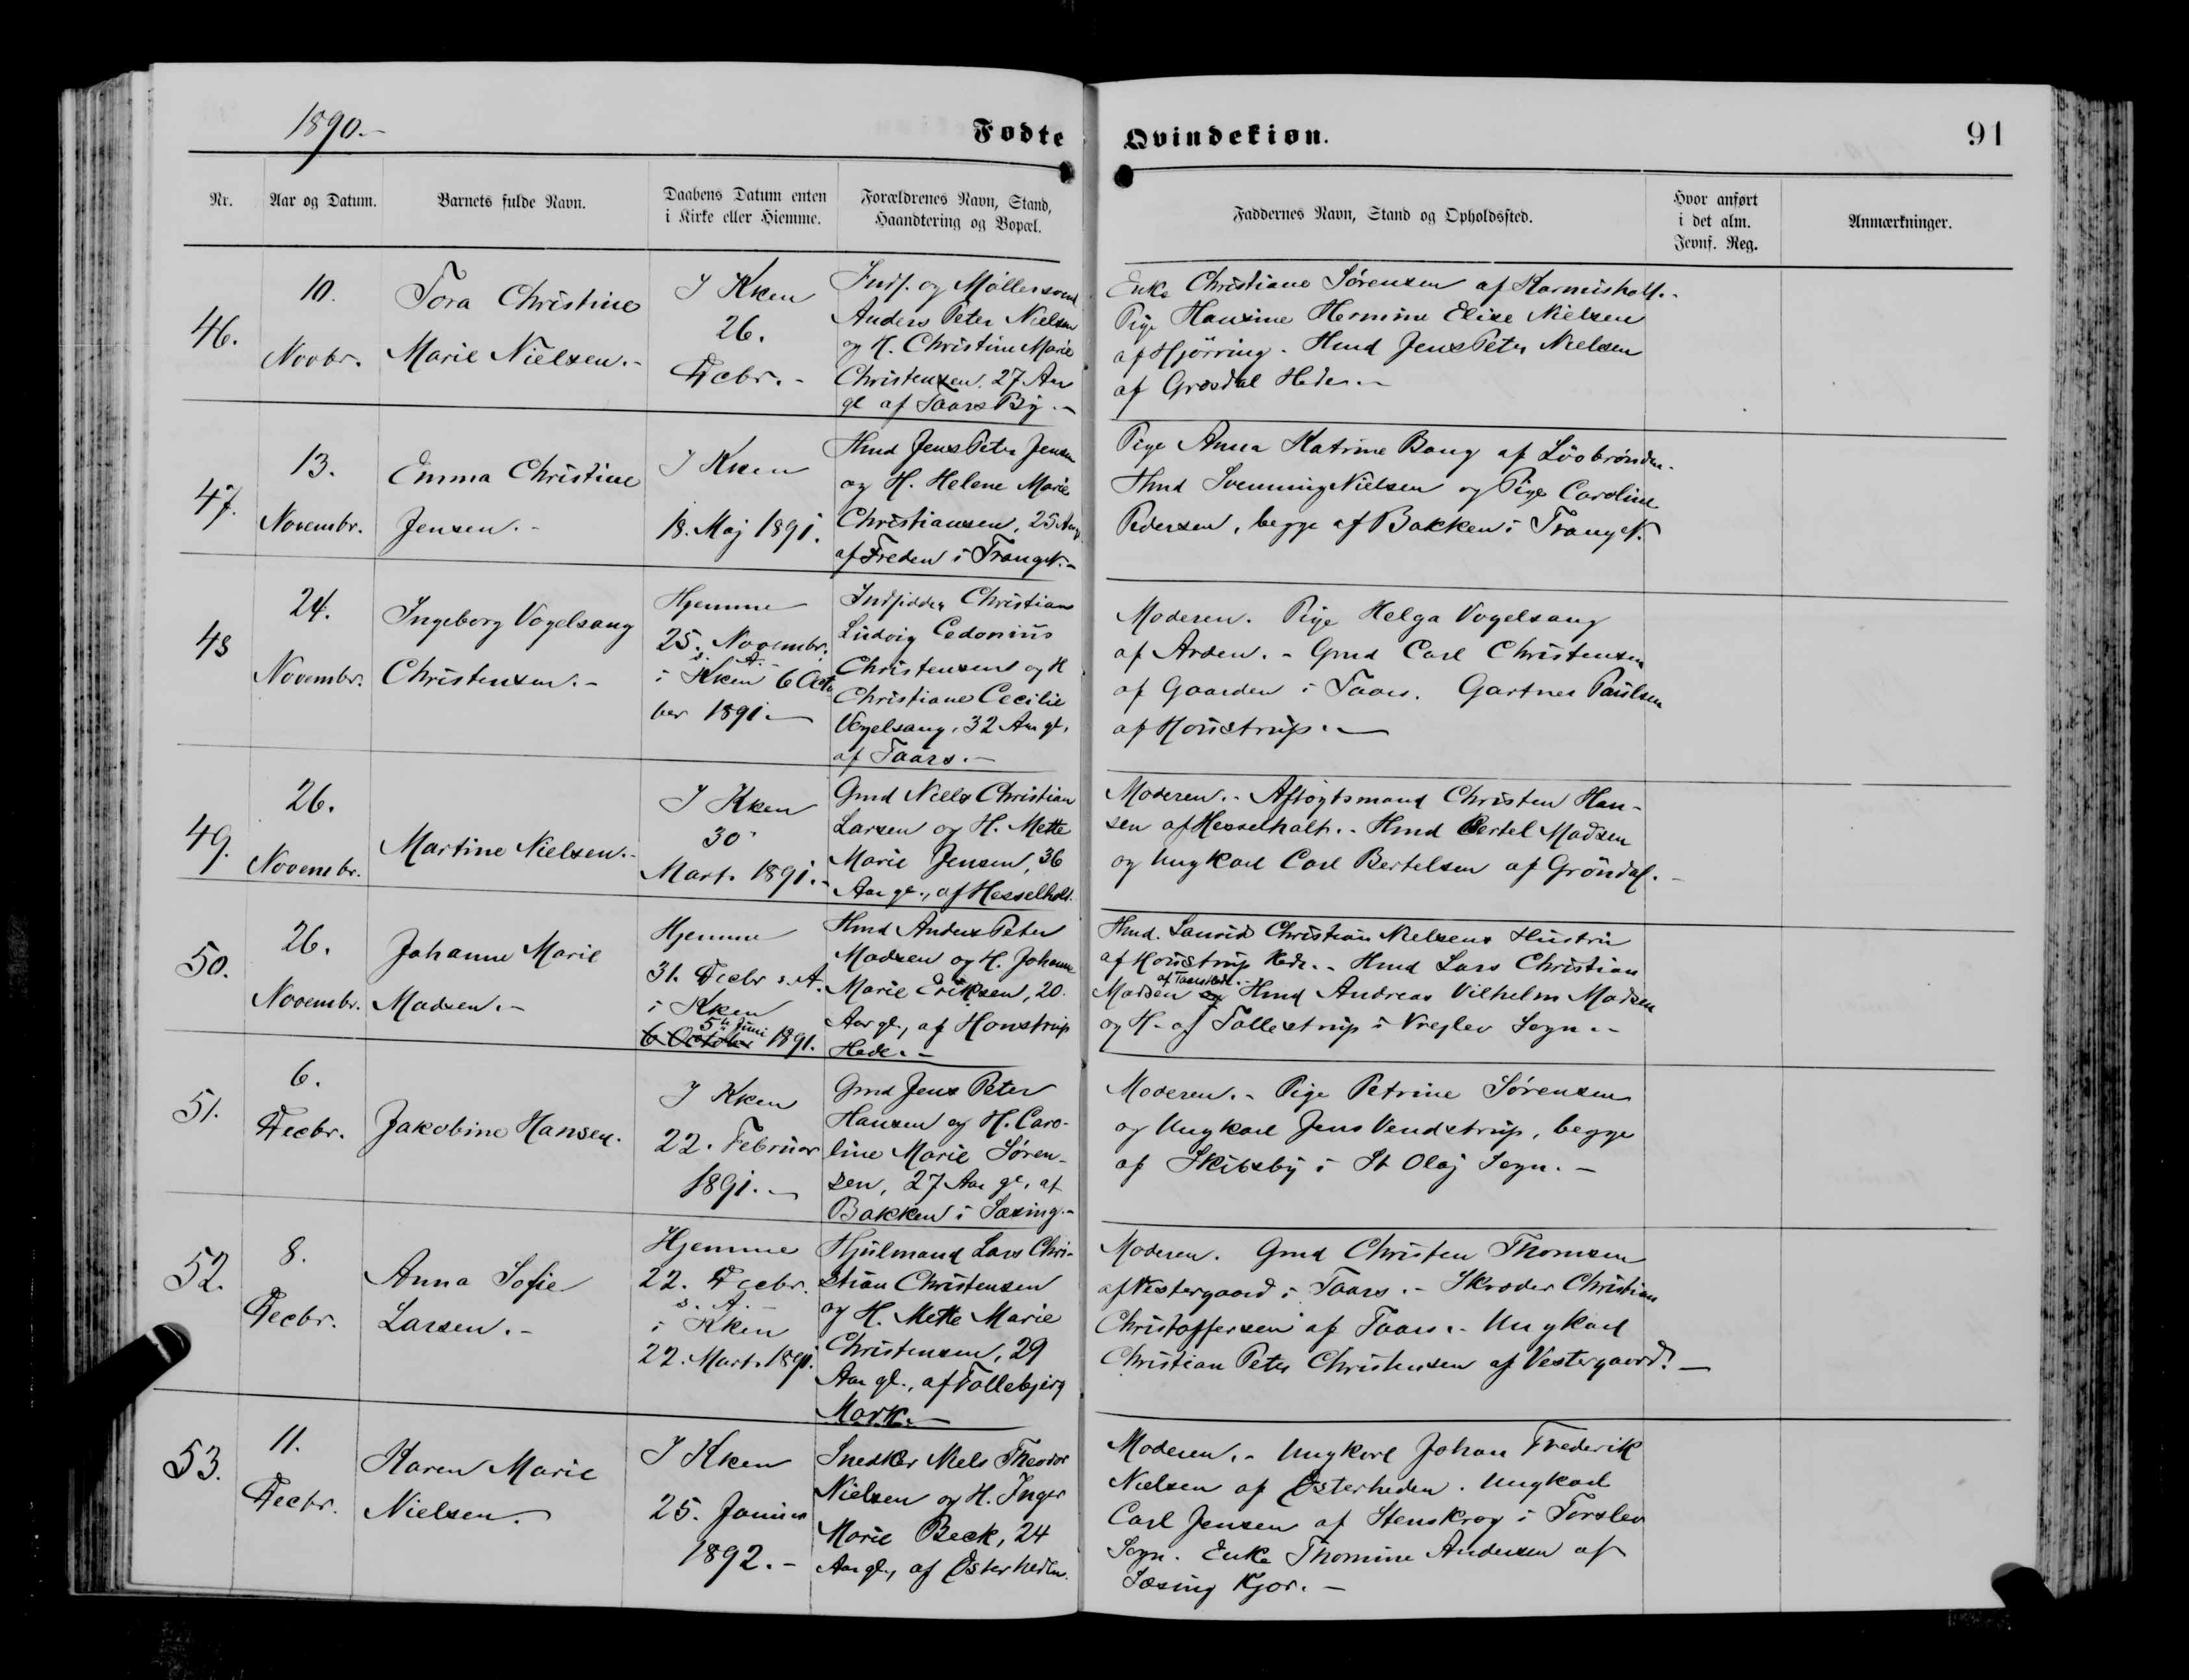 1890.-
Fødte
Qvindekiøn.
91
Nr.
Aar og Datum.
Barnets fulde Navn.
Daabens Datum enten
i Kirke eller Hiemme.
Forældrenes Navn, Stand,
Haandtering og Bopæl.
Faddernes Navn, Stand og Opholdssted.
Hvor anført
i det alm.
Jevnf. Reg.
Anmærkninger.
46.
10.
Novbr.
Tora Christine
Marie Nielsen.-
I Kken
26.
Decbr.-
Inds. og Møllersvend
Anders Peter Nielsen
og H. Christine Marie
Christensen, 27 Aar
gl af Taars By.-
Enke Christiane Sørensen af
Pige Hansine Hermine Elise Nielsen
af Hjørring. Hmd Jens Peter Nielsen
af Grøsdal Hede.-
47.
13.
Novembr.
Emma Christine
Jensen.-
I Kken
18. Maj 1891.
Hmd Jens Peter Jensen
og H. Helene Marie
Christiansen, 25 Aar
af Freden i Tranget.-
Pige Anna Katrine Bang af Løvbrønden.
Hmd Svenning Nielsen og Pige Caroline
Pedersen, begge af Bakken i Tranget.
48
24.
Novembr.
Ingeborg Vogelsang
Christensen.-
Hjemme
25. Novembr.
s. A.-
i Kken 6 Octo
ber 1891.-
Indsidder Christian
Ludvig Cedonius
Christensen og H
Christiane Cecilie
Vogelsang, 32 Aar gl.
af Taars.-
Moderen. Pige Helga Vogelsang
af Arden.- Gmd Carl Christensen
af Gaarden i Taars. Gartner Paulsen
af Houstrup.-
49.
26.
Novembr.
Martine Nielsen.-
I Kken
30
Mart. 1891.-
Gmd Niels Christian
Larsen og H. Mette
Marie Jensen, 36
Aar gl., af Hesselholt.
Moderen.- Aftægtsmand Christen Han-
sen af Hesselholt.- Hmd Bertel Madsen
og Ungkarl Carl Bertelsen af Grøndal.-
50.
26.
Novembr.
Johanne Marie
Madsen.-
Hjemme
31. Decbr s. A.
i Kken
5te Juni
6 October 1891.
Hmd Anders Peter
Madsen og H. Johanne
Marie Eriksen, 20
Aar gl., af Houstrup
Hede.-
Hmd. Laurids Christian Nielsens Hustru
af Houstrup Hede.- Hmd Lars Christian
af Taars Hede.
Madsen og Hmd Andreas Vilhelm Madsen
og H. af Tollestrup i Vrejlev Sogn.-
51.
6.
Decbr.
Jakobine Hansen.
I Kken
22. Februar
1891.-
Gmd Jens Peter
Hansen og H. Caro-
line Marie Søren-
sen, 27 Aar gl. af
Bakken i Sæsing.-
Moderen.- Pige Petrine Sørensen
og Ungkarl Jens Vendstrup, begge
af Skibsby i St Olaj Sogn.-
52.
8.
Decbr.
Anna Sofie
Larsen.-
Hjemme
22. Decbr.
s. A.-
i Kken
22. Mart. 1891.
Hjulmand Lars Chri-
stian Christensen
og H. Mette Marie
Christensen, 29
Aar gl., af Follebjerg
Mark.-
Moderen. Gmd Christen Thomsen
af Vestergaard i Taars.- Skræder Christian
Christoffersen af Taars.- Ungkarl
Christian Peter Christensen af Vestergaard.-
53.
11.
Decbr.
Karen Marie
Nielsen.
I Kken
25. Januar
1892.-
Snedker Niels Theodor
Nielsen og H. Inger
Marie Beck, 24
Aar gl., af Østerheden.
Moderen.- Ungkarl Johan Frederik
Nielsen af Østerheden. Ungkarl
Carl Jensen af Stenskrog i Torslev
Sogn. Enke Thomine Andersen af
Sæsing Kjær.-